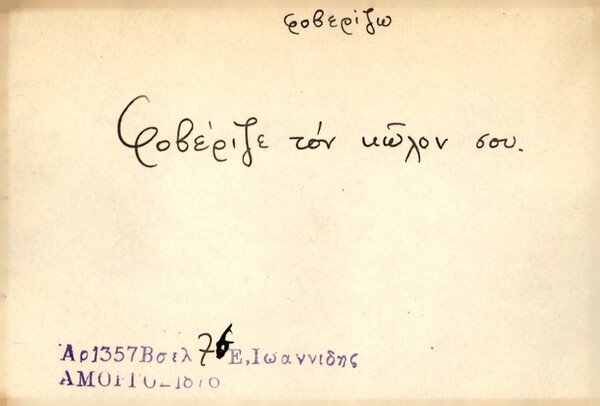 φοβερίζω
Φοβέριζε τόν κῶλον σου.
Ἀρ1357Βσελ 76 Ε,Ιωαννιδης
ΑΜΟΡΓΟΣ1876